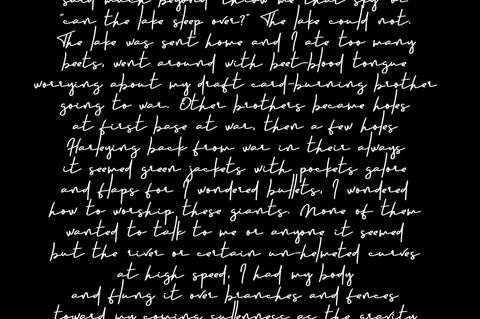 said much beyond throw me that spy or
"can the lake sleep over?" The lake could not.
The lake was sent home and I ate too many
beets, went around with beet-blood tongue
worrying about my draft card-burning brother
going to war. Other brothers became holes
at first base at war, then a few holes
Harleying back from war in their always
it seemed green jackets with pockets galore
and flaps for I wondered bullets, I wondered
how to worship these giants. None of them
wanted to talk to me or anyone it seemed
but the river or certain un-helmeted curves
at high speed, I had my body
and flung it over branches and fences
toward my coming sullenness as the gravity